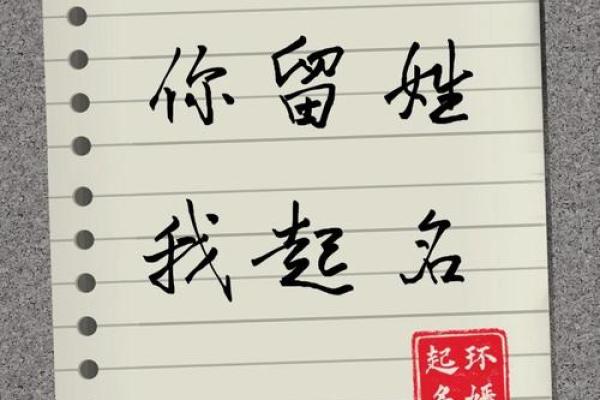 你留姓
我起名
起环